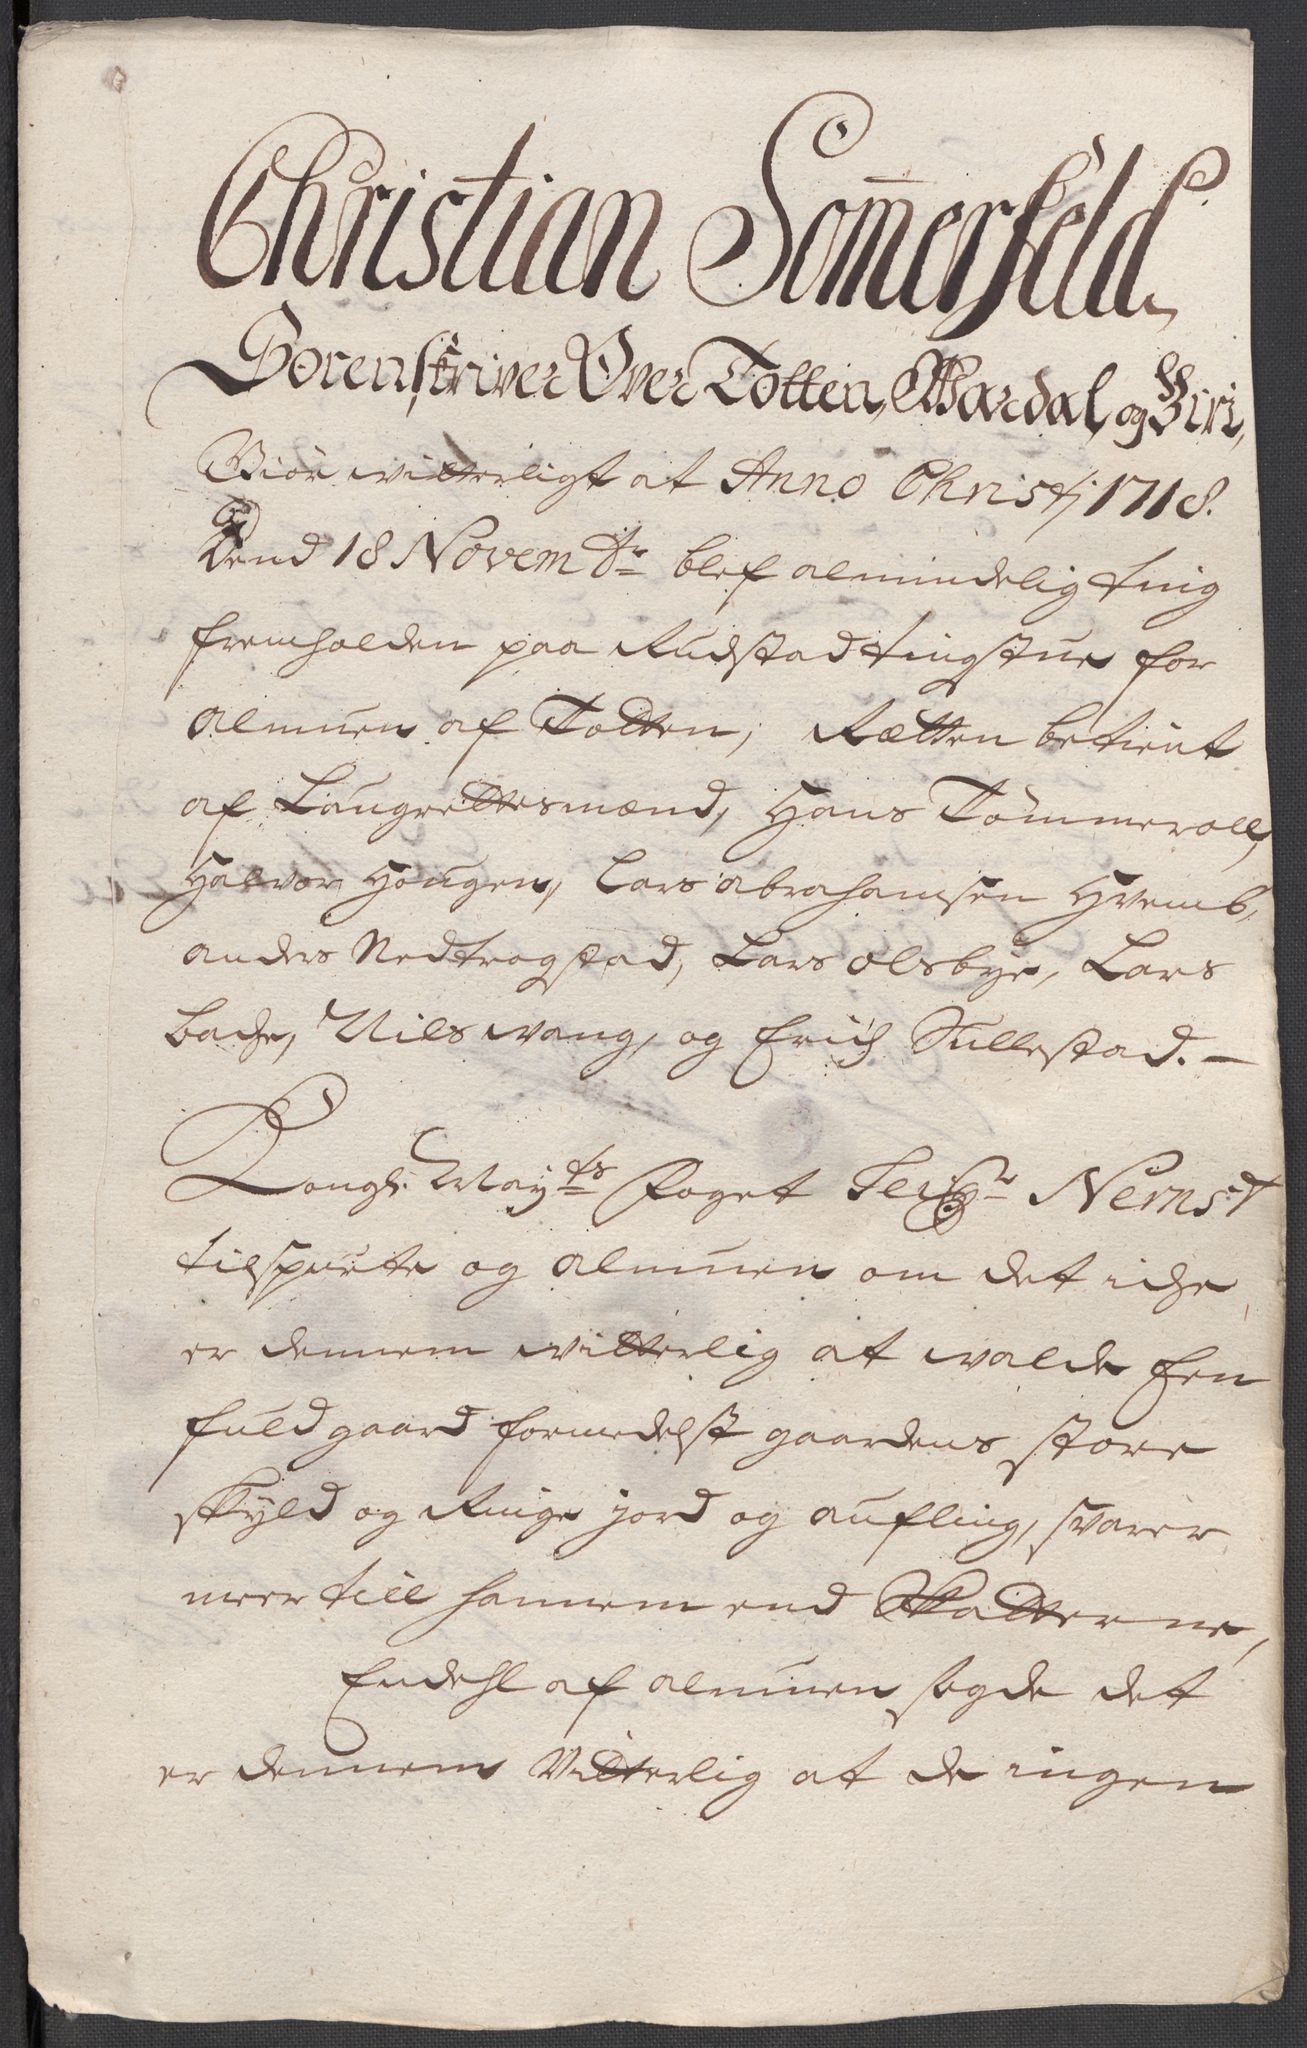 Christian Som̄erfeld,
Sorenskriver Over Totten, Wardal, og Biri,
Giør witterligt at Anno Christj 1718.
Dend 18 Novembr blef almindelig ting
fremholden paa Rudstad tingstue for
almuen af Totten, Rætten betient
af Laugrettesmænd, Hans Tømmeroll,
Halvor Hougen, Lars abrahamsen Hvemb,
anders Nedtrogstad, Lars olsbye, Lars
Bache, Niels wang, og Erich Sullestad. –
Kongl. Mayts foget Ser Nernst
tilspurte og almuen om det iche
er dennem witterlig at walde Een
fuld gaard formedelst gaardens store
skyld og Ringe jord og aufling, svarer
meer till hannem end Skatterne,
Endehl af almuen sagde det
er dennem Vitterlig at de ingen